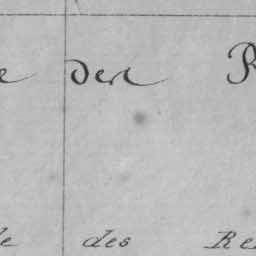 e der R
le des Re